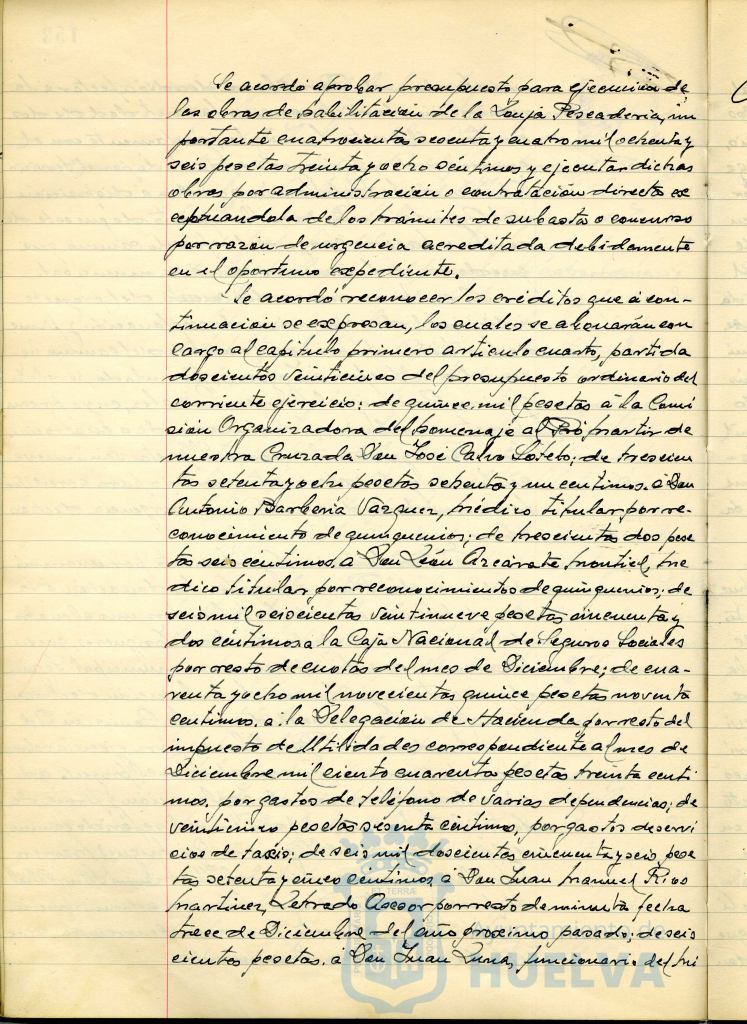 Se acordó aprobar presupuesto para ejecución de
las obras de habilitación de la Lonja Pescadería, im
portante cuatrocientas sesenta y cuatro mil ochenta y
seis pesetas treinta y ocho céntimos y ejecutar dichas
obras por administración o contratación directa ex
ceptuandola de los trámites de subasta o concurso
por razón de urgencia acreditada debidamente
en el oportuno expediente.
Se acordó reconocer los créditos que a con-
tinuación se expresan, los cuales se abonarán con
cargo al capitulo primero articulo cuarto, partida
doscientos veinticinco del presupuesto ordinario del
corriente ejercicio: de quince mil pesetas à la Comi
sión Organizadora del homenaje al Protomartir de
nuestra Cruzada Don José Calvo Sotelo; de trescien
tas setenta y ocho pesetas setenta y un centimos à Don
Antonio Barberia Vazquez, Médico titular por re-
conocimiento de quinquenios; de trescientas dos pese
tas seis céntimos, a Don León Azcárate Montiel, mé
dico titular por reconocimientos de quinquenios; de
seis mil seiscientas veintinueve pesetas cincuenta y
dos céntimos a la Caja Nacional de Seguros Sociales
por resto de cuotas del mes de Diciembre; de cua-
renta y ocho mil novecientas quince pesetas noventa
centimos, à la Delegación de Hacienda por resto del
impuesto de Utilidades correspondiente al mes de
Diciembre mil ciento cuarenta pesetas treinta centi
mos, por gastos de teléfono de varias dependencias; de
veinticinco pesetas sesenta céntimos, por gastos de servi
cios de taxis; de seis mil doscientas cincuenta y seis pese
tas setenta y cinco céntimos à Don Juan Manuel Rivo
Martinez, Letrado Asesor por resto de minuta fecha
trece de Diciembre del año proximo pasado; de seis
cientas pesetas, à Don Juan Luna, funcionario del Mi
HUELVA